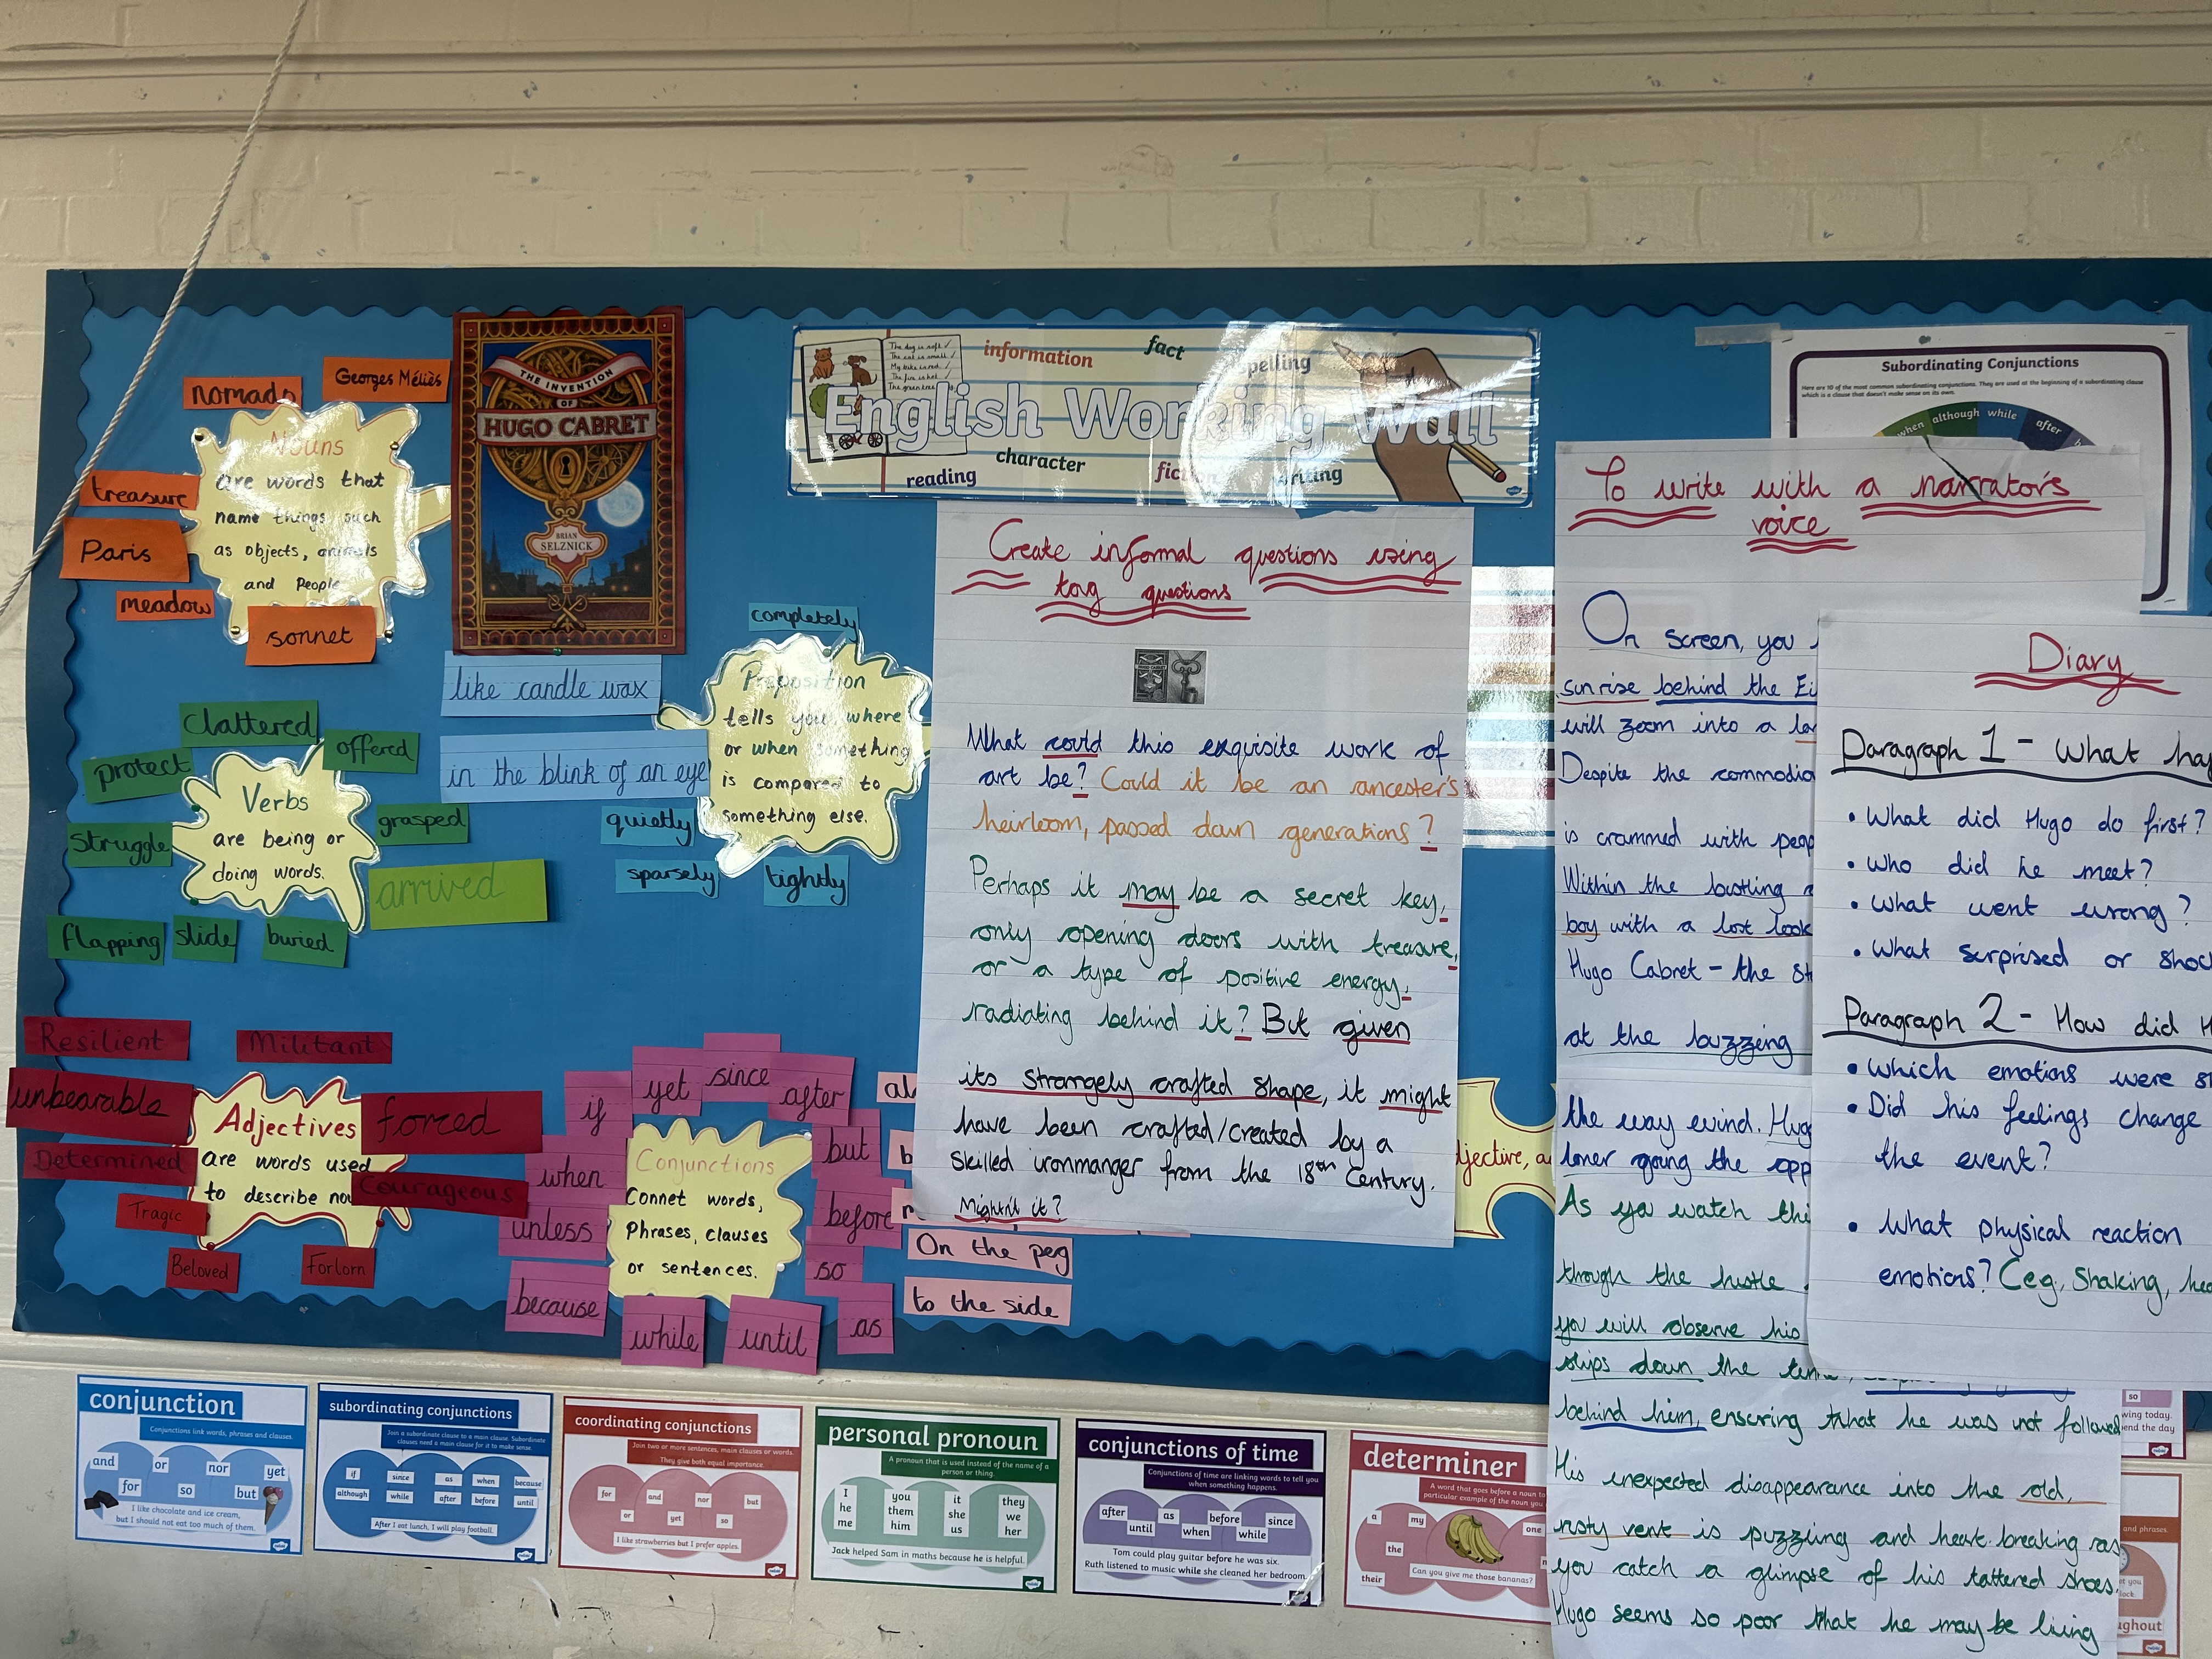 nomads
Georges Méliès
Nouns
are words that
name things such
as objects, animals
and People
treasure
Paris
meadow
sonnet
THE INVENTION
OF
HUGO CABRET
BRIAN
SELZNICK
information
fact
spelling
English Working Wall
reading
character
writing
Subordinating Conjunctions
Here are 10 of the most common subordinating conjunctions. They are used at the beginning of a subordinating clause
which is a clause that doesn't make sense on its own.
when
although
while
after
like candle wax
in the blink of an eye
completely
Preposition
tells you where
or when something
is compared to
something else.
quietly
sparsely
tightly
clattered
offered
protect
Verbs
are being or
doing words.
struggle
grasped
arrived
flapping
slide
buried
Resilient
Militant
unbearable
Adjectives
are words used
to describe
forced
Determined
Courageous
Tragic
Beloved
Forlorn
if
yet
since
after
but
when
Conjunctions
Connet words,
Phrases, clauses
or sentences.
before
unless
so
because
while
until
as
On the peg
to the side
Create informal questions using
tag questions
HUGO CABRET
What could this exquisite work of
art be? Could it be an ancester's
heirloom, passed down generations?
Perhaps it may be a secret key,
only opening doors with treasure,
or a type of positive energy,
radiating behind it? But given
its strangely crafted shape, it might
have been crafted/created by a
skilled ironmanger from the 18th Century.
Mightn't it?
To write with a narrator's
voice
On screen, you
sunrise behind the
will zoom into a
Despite the
is crammed with
Within the bustling
boy with a lost look
Hugo Cabret - the
at the buzzing
the way evind.
loner going the
As you watch
through the hustle
you will observe his
slips down the
behind him, ensuring that he was not followed
His unexpected disappearance into the old,
rusty vent is puzzling and heart breaking as
you catch a glimpse of his tattered shoes.
Hugo seems so poor that he may be living
Diary
Paragraph 1 - What
• What did Hugo do first?
• Who did he meet?
• What went wrong?
• What surprised or
Paragraph 2 - How did
• Which emotions were
• Did his feelings change
the event?
• What physical reaction
emotions? (eg, Shaking,
conjunction
Conjunctions link words, phrases and clauses.
and
or
nor
yet
for
so
but
I like chocolate and ice cream,
but I should not eat too much of them.
subordinating conjunctions
Join a subordinate clause to a main clause. Subordinate
clauses need a main clause for it to make sense.
if
since
as
when
because
although
while
after
before
until
After I eat lunch, I will play football.
coordinating conjunctions
Join two or more sentences, main clauses or words.
They give both equal importance.
for
and
nor
but
or
yet
so
I like strawberries but I prefer apples.
personal pronoun
A pronoun that is used instead of the name of a
person or thing.
I
he
me
you
them
him
it
she
us
they
we
her
Jack helped Sam in maths because he is helpful.
conjunctions of time
Conjunctions of time are linking words to tell you
when something happens.
after
as
before
since
until
when
while
Tom could play guitar before he was six.
Ruth listened to music while she cleaned her bedroom.
determiner
A word that goes before a noun to
particular example of the noun you
a
my
one
the
their
Can you give me those bananas?
so